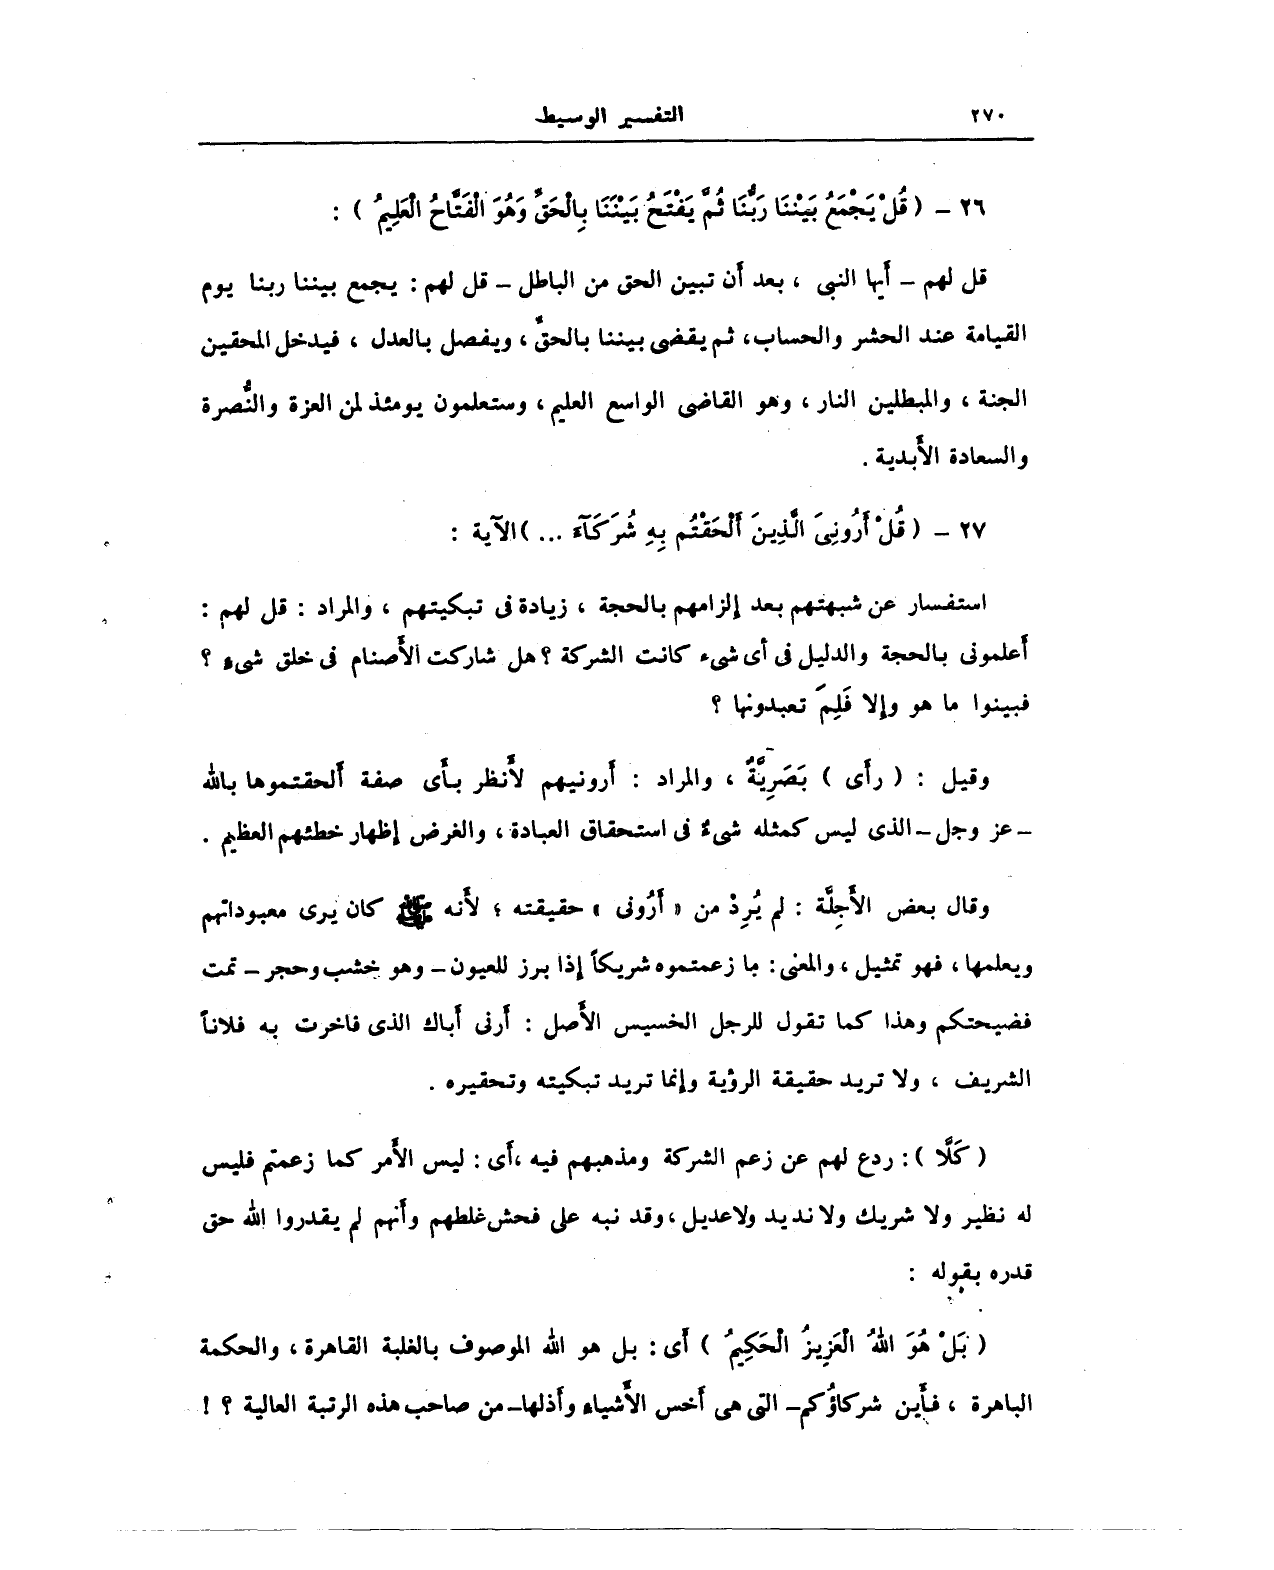 ٢٧٠ التفسير الوسيط
٢٦ – ( قُلْ يَجْمَعُ بَيْنَنَا رَبُّنَا ثُمَّ يَفْتَحُ بَيْنَنَا بِالْحَقِّ وَهُوَ الْفَتَّاحُ الْعَلِيمُ ) :
قل لهم – أيها النبى ، بعد أن تبين الحق من الباطل – قل لهم : يجمع بيننا ربنا يوم
القيامة عند الحشر والحساب ، ثم يقضى بيننا بالحقِّ ، ويفصل بالعدل ، فيدخل المحقين
الجنة ، والمبطلين النار ، وهو القاضى الواسع العليم ، وستعلمون يومئذ لمن العزة والنُّصرة
والسعادة الأبدية .
٢٧ – ( قُلْ أَرُونِىَ الَّذِينَ أَلْحَقْتُم بِهِ شُرَكَآءَ ... ) الآية :
استفسار عن شبهتهم بعد إلزامهم بالحجة ، زيادة فى تبكيتهم ، والمراد : قل لهم :
أعلمونى بالحجة والدليل فى أى شىء كانت الشركة ؟ هل شاركت الأصنام فى خلق شىء ؟
فبينوا ما هو وإلا فَلِمَ تعبدونها ؟
وقيل : ( رأى ) بَصَرِيَّةٌ ، والمراد : أرونيهم لأنظر بأى صفة ألحقتموها بالله
– عز وجل – الذى ليس كمثله شىءٌ فى استحقاق العبادة ، والغرض إظهار خطئهم العظيم .
وقال بعض الأَجِلَّة : لم يُرِدْ من « أَرُونى » حقيقته ؛ لأنه ﷺ كان يرى معبوداتهم
ويعلمها ، فهو تمثيل ، والمعنى : ما زعمتموه شريكاً إذا برز للعيون – وهو خشب وحجر – تمت
فضيحتكم وهذا كما تقول للرجل الخسيس الأصل : أرنى أباك الذى فاخرت به فلاناً
الشريف ، ولا تريد حقيقة الرؤية وإنما تريد تبكيته وتحقيره .
( كَلَّا ) : ردع لهم عن زعم الشركة ومذهبهم فيه ، أى : ليس الأمر كما زعمتم فليس
له نظير ولا شريك ولا نديد ولا عديل ، وقد نبه على فحش غلطهم وأنهم لم يقدروا الله حق
قدره بقوله :
( بَلْ هُوَ اللهُ الْعَزِيزُ الْحَكِيمُ ) أى : بل هو الله الموصوف بالغلبة القاهرة ، والحكمة
الباهرة ، فأين شركاؤُكم – التى هى أخس الأشياء وأذلها – من صاحب هذه الرتبة العالية ؟ !